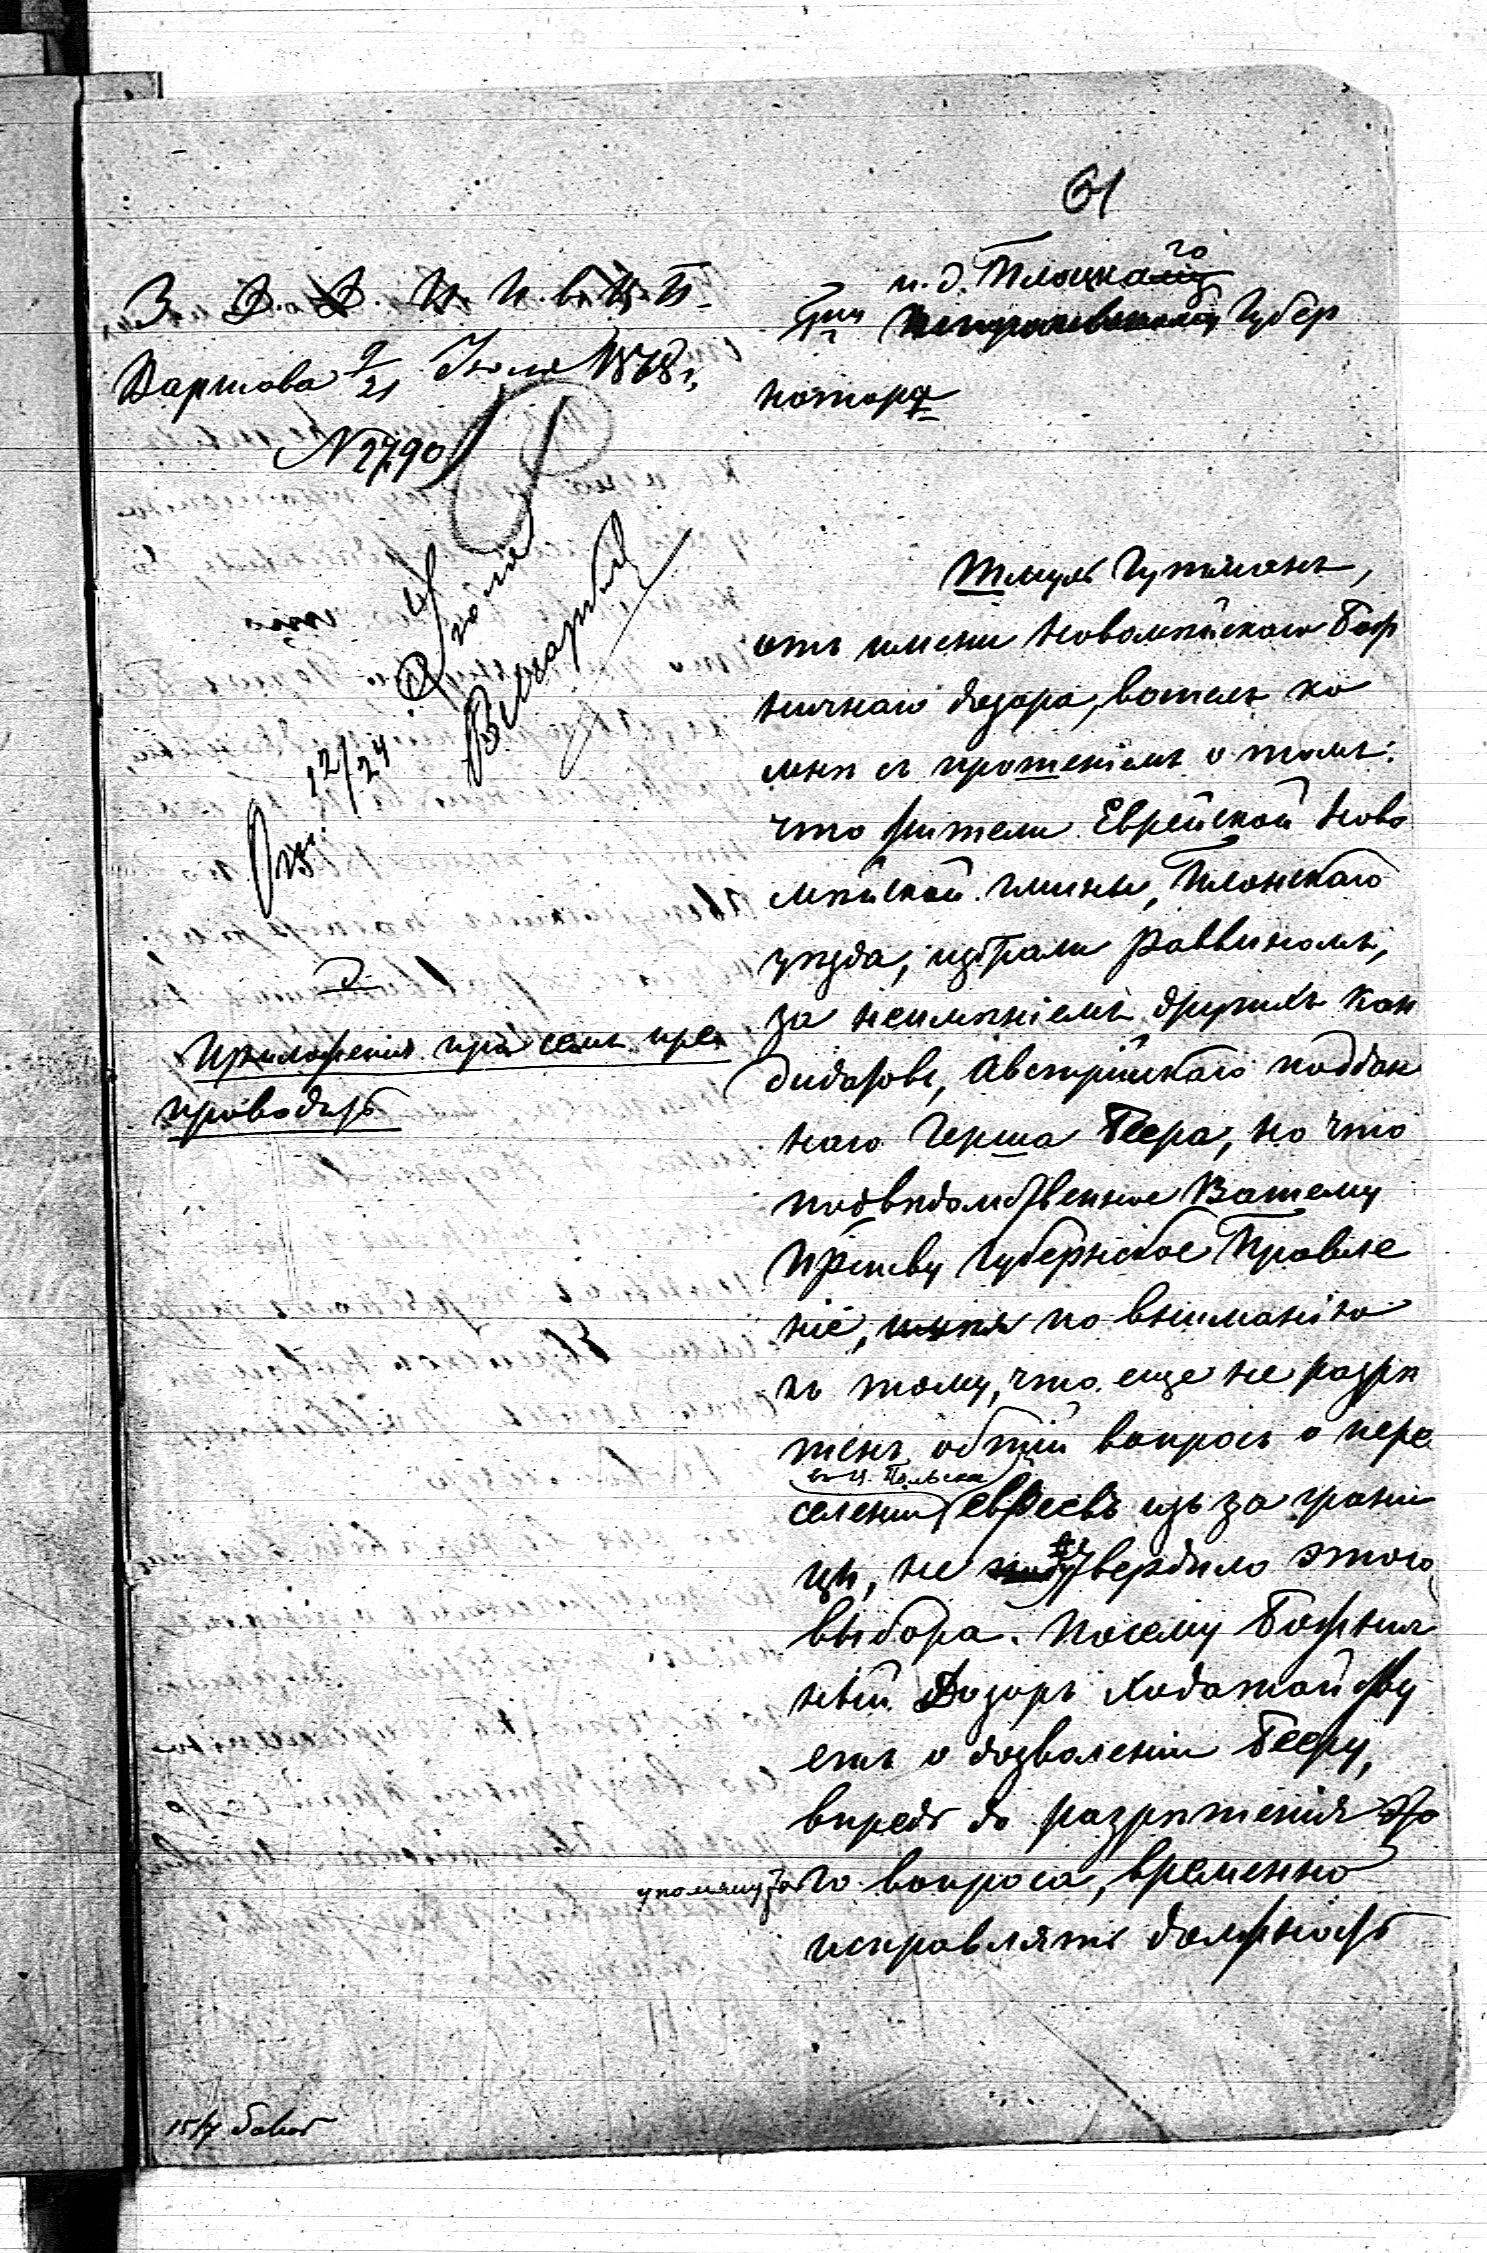 61
З. Д. Д. И. И. в. Ц. П.
Варшава 9/21 Июля 1878 г.
№ 2790
и. д. Плоцкаго
Гну Губер
натору
9 Июля
От. 12/24
Приложенія при семъ пре
проводить
Шмуль Гутманъ,
отъ имени Новомѣйскаго Бож
ничнаго дозора, вошелъ ко
мнѣ съ прошеніемъ о томъ:
что жители Еврейской Ново
мѣйской гмины, Плонскаго
уѣзда, избрали Раввиномъ,
за неимѣніемъ другихъ кан
дидатовъ, Австрійскаго поддан
наго Герша Беера, но что
подвѣдомственное Вашему
Пр-ству Губернское Правле
ніе, по вниманію
къ тому, что еще не разрѣ
шенъ общій вопросъ о пере
селеніи въ Ц. Польское евреевъ изъ за грани
цы, не утвердило этого
выбора. Посему Божнич
ный Дозоръ ходатайству
етъ о дозволеніи Бееру,
впредь до разрѣшенія
упомянутаго вопроса, временно
исправлять должность
15/7